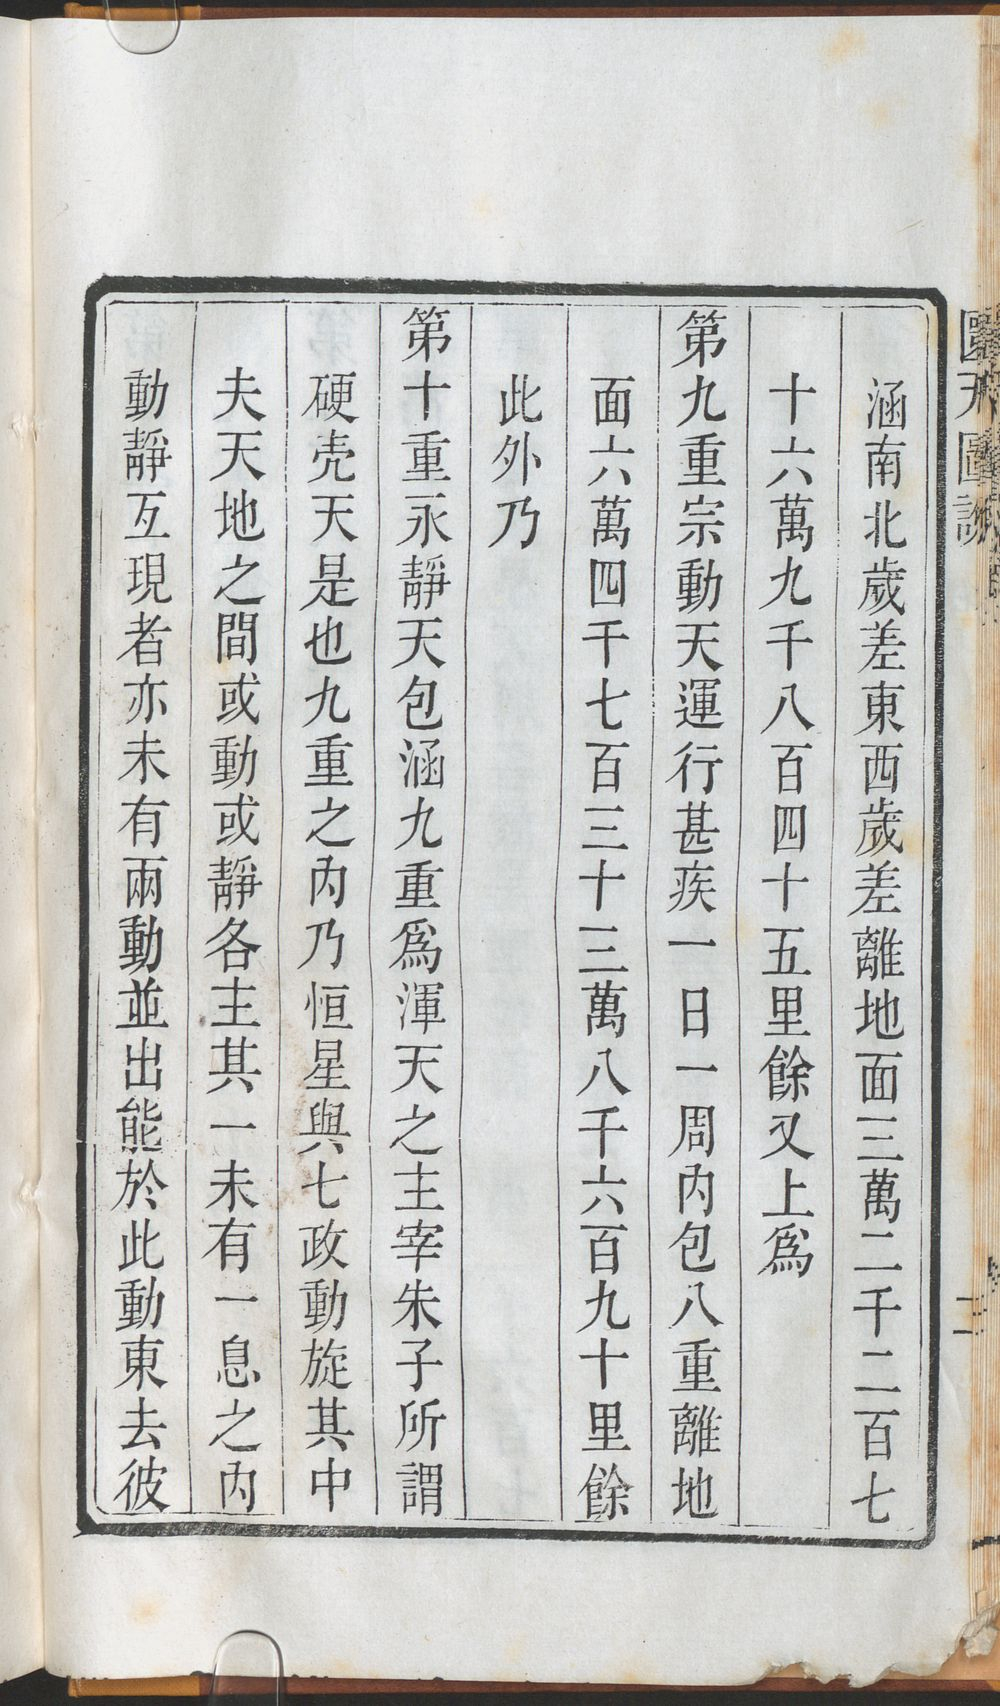 涵南北歲差東西歲差離地面三萬二千二百七
十六萬九千八百四十五里餘又上爲
第九重宗動天運行甚疾一日一周内包八重離地
面六萬四千七百三十三萬八千六百九十里餘
此外乃
第十重永靜天包涵九重爲渾天之主宰朱子所謂
硬壳天是也九重之內乃恒星與七政動旋其中
夫天地之間或動或靜各主其一未有一息之內
動靜互現者亦未有兩動並出能於此動東去彼